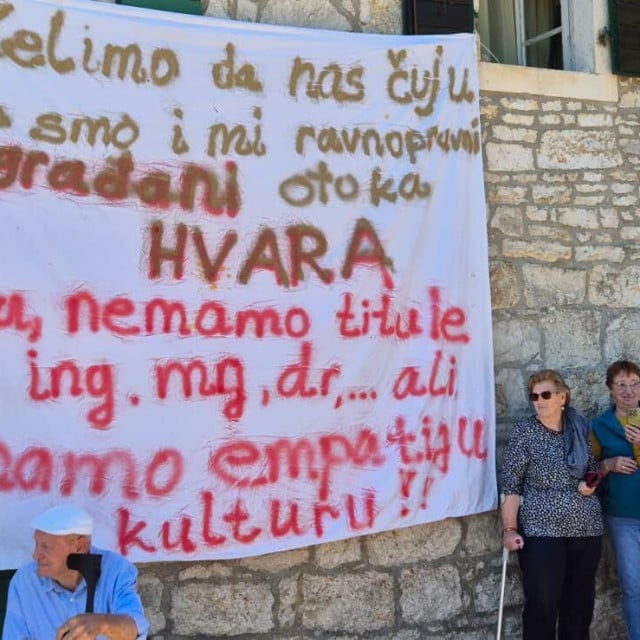 Želimo da nas čuju
smo i mi ravnopravni
građani otoka
HVARA
nemamo titule
ing. mg, dr,... ali
empatiju
kulturu!!